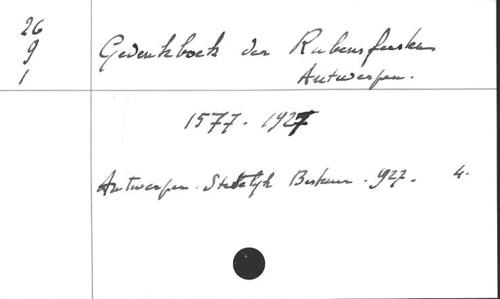 26
9
1
Gedenkboek der Rubensfeesten
Antwerpen.
1577 - 1927
Antwerpen. Stedelijk Bestuur. 927. 4.